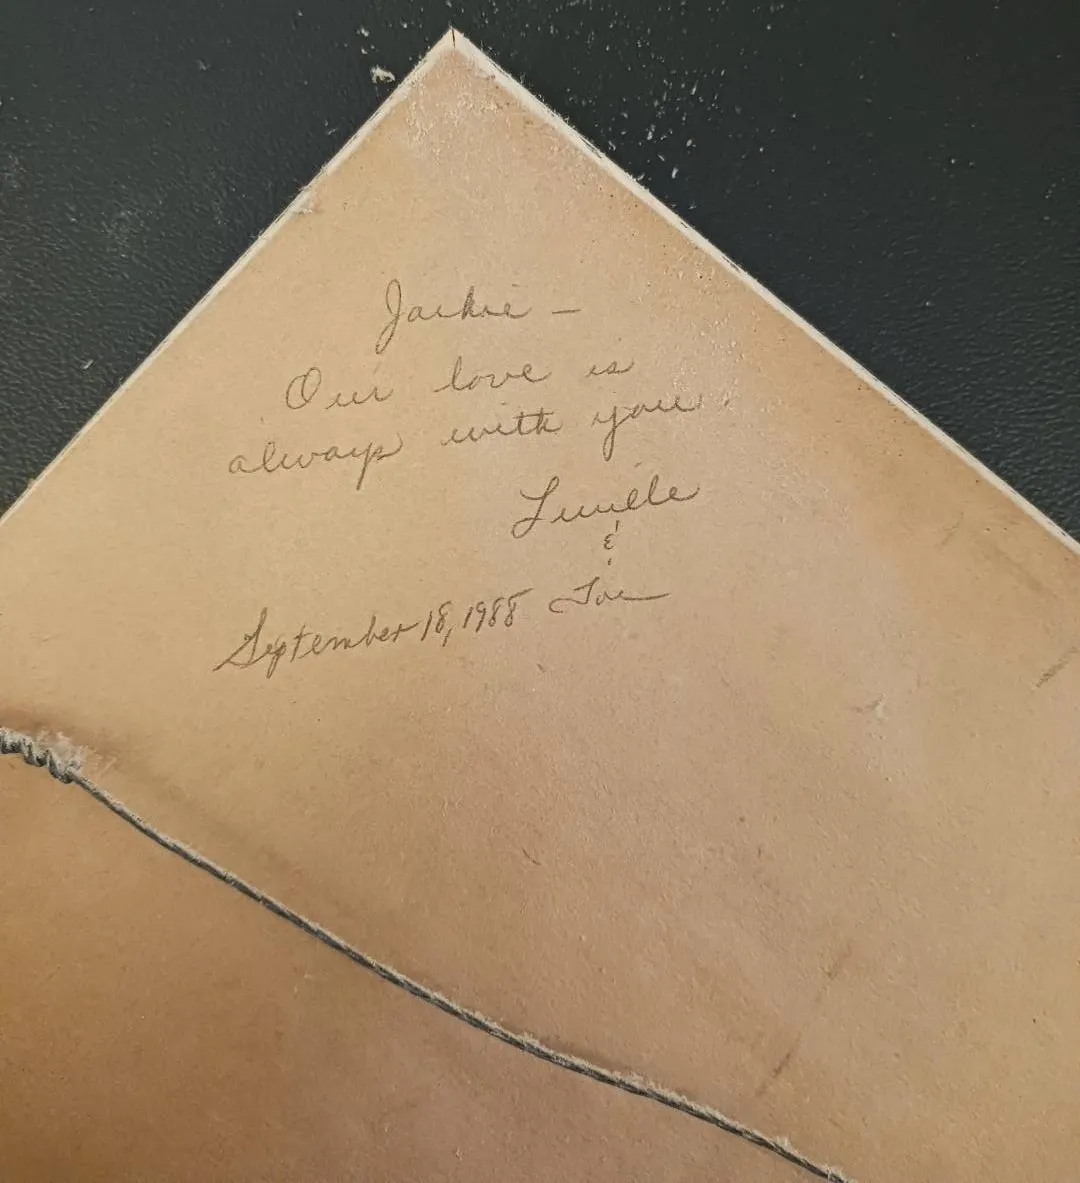 Jackie —
Our love is
always with you.
Lucille
&
September 18, 1988 Joe